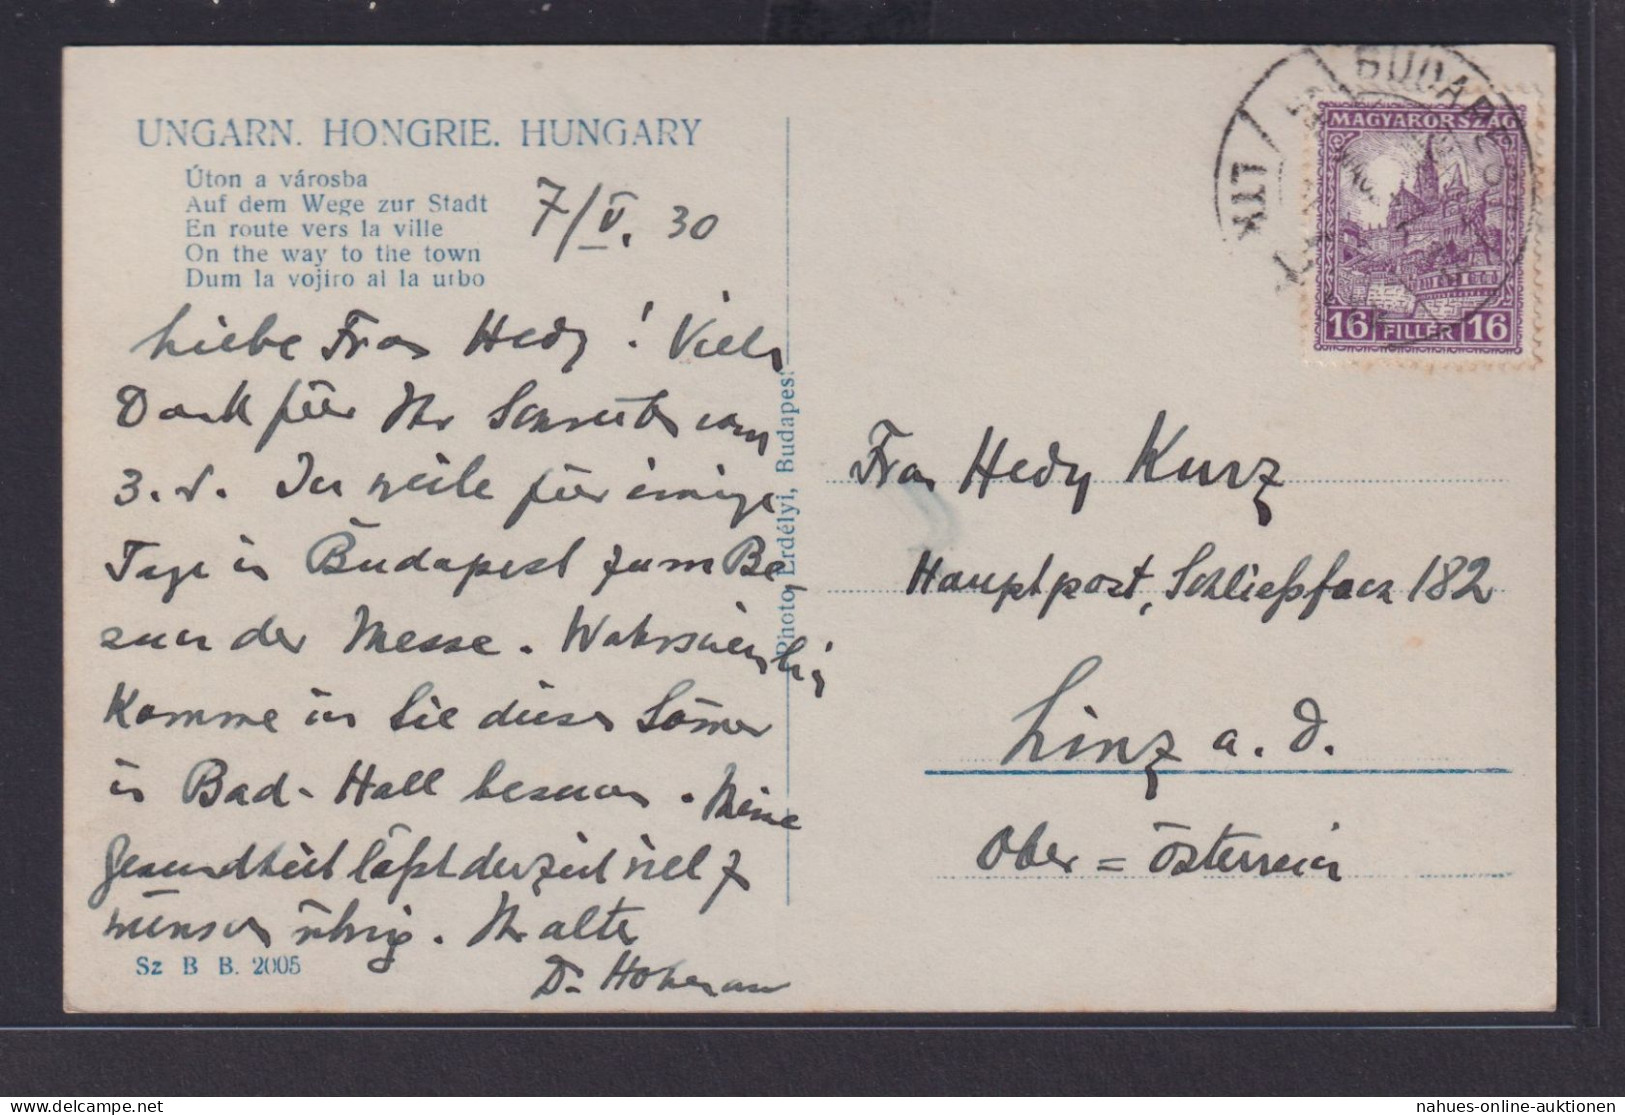 UNGARN. HONGRIE. HUNGARY
Úton a városba
Auf dem Wege zur Stadt
En route vers la ville
On the way to the town
Dum la vojiro al la urbo
7/V. 30
Liebe Frau Hedy! Viele
Dank für Ihr Schreiben vom
3. d. Ich weile für einige
Tage in Budapest zum Be-
such der Messe. Wahrscheinlich
komme ich Sie diesen Sommer
in Bad-Hall besuchen. Meine
Gesundheit läßt derzeit viel z
wünschen übrig. Ihr alter
Dr
Sz B B. 2005
Photo Erdélyi, Budapest
BUDAPEST
MAGYARORSZÁG
16 FILLÉR 16
Frau Hedy Kurz
Hauptpost, Schließfach 182
Linz a. D.
Ober=Österreich
nahues-online-auktionen